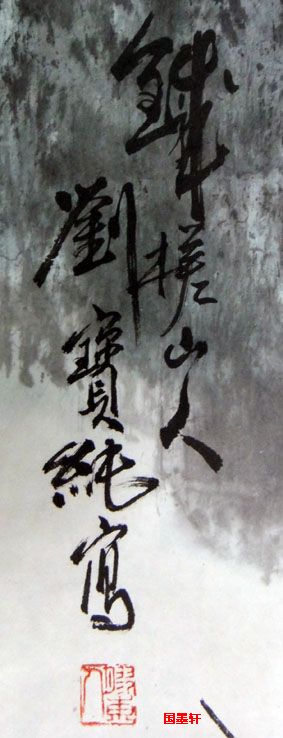 鐵槎山人
劉寶純寫
国墨轩